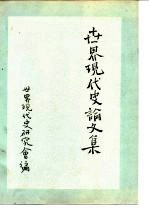 世界現代史論文集
世界現代史研究會編